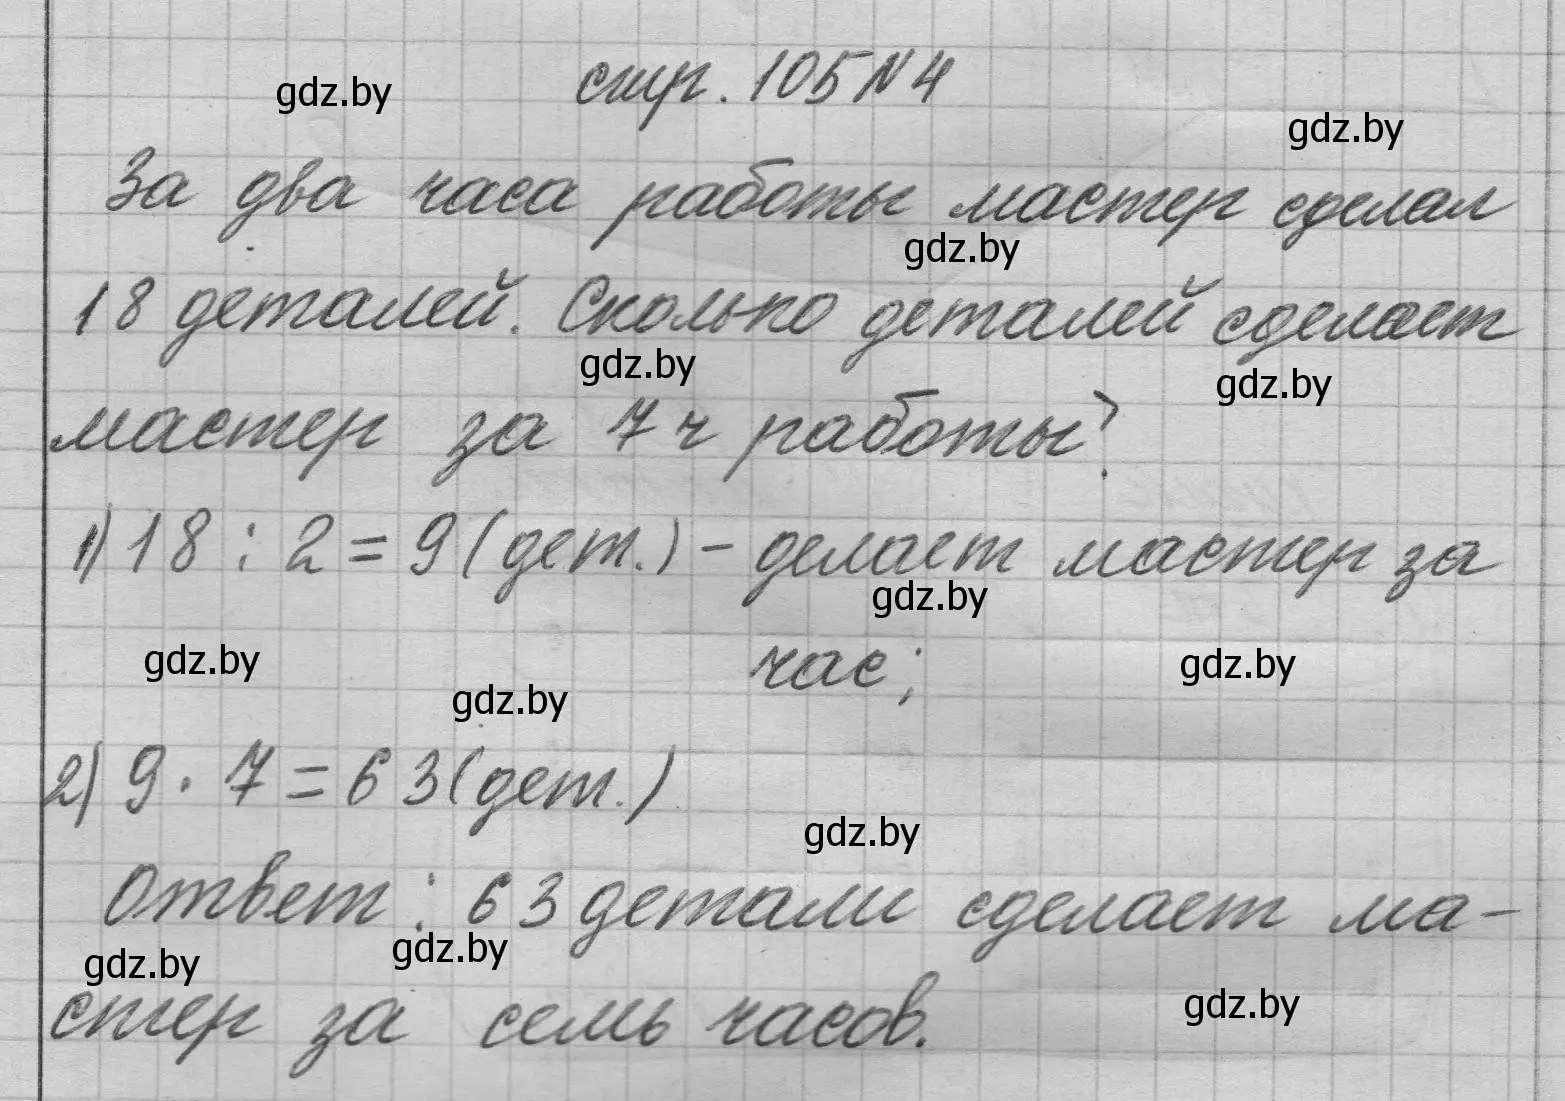 стр. 105 N 4
gdz.by
gdz.by
За два часа работы мастер сделал
gdz.by
18 деталей. Сколько деталей сделает
gdz.by
gdz.by
мастер за 7 ч работы?
1) 18 : 2 = 9 (дет.) - делает мастер за
gdz.by
час;
gdz.by
gdz.by
gdz.by
2) 9 · 7 = 63 (дет.)
gdz.by
Ответ: 63 детали сделает ма-
gdz.by
gdz.by
стер за семь часов.
gdz.by